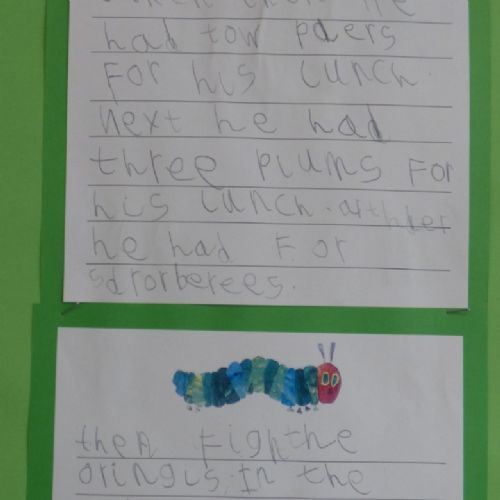 had tow paers
For his Lunch.
Next he had
three plums For
his Lunch. arthder
he had For
sdrorberees.
then Fighthe
oringis In the